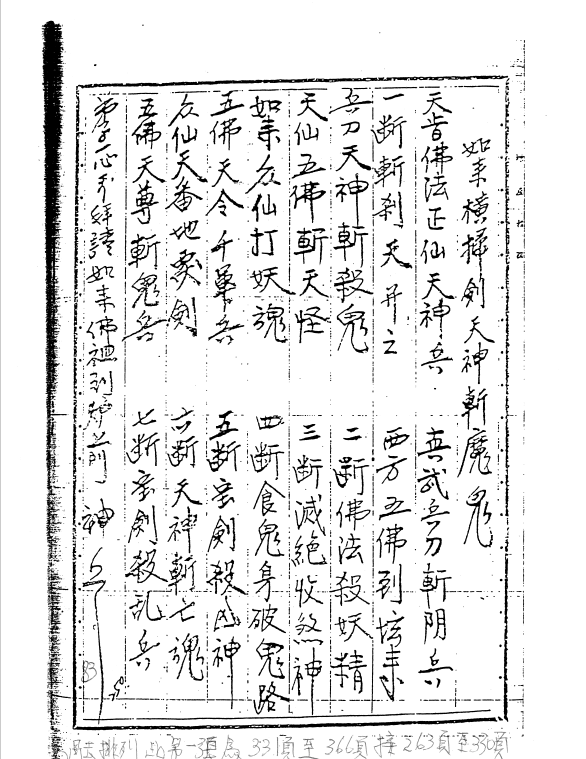 如来橫掃劍天神斬魔鬼
天省佛法正仙天神兵 真武兵刀斬阴兵
一断斬剎天开之 西方五佛到坛来
兵刀天神斬殺鬼 二断佛法殺妖精
天仙五佛斬天怪 三断滅絕收煞神
如来众仙打妖魂 四断食鬼身破鬼路
五佛天令千軍兵 五断宝劍殺凶神
众仙天番地灵劍 六断天神斬七魂
五佛天尊斬鬼兵 七断宝劍殺乱兵
拜請如来佛祖到炉前 神兵
83
排列 此另一張為 33項至366頁 接263頁至330頁